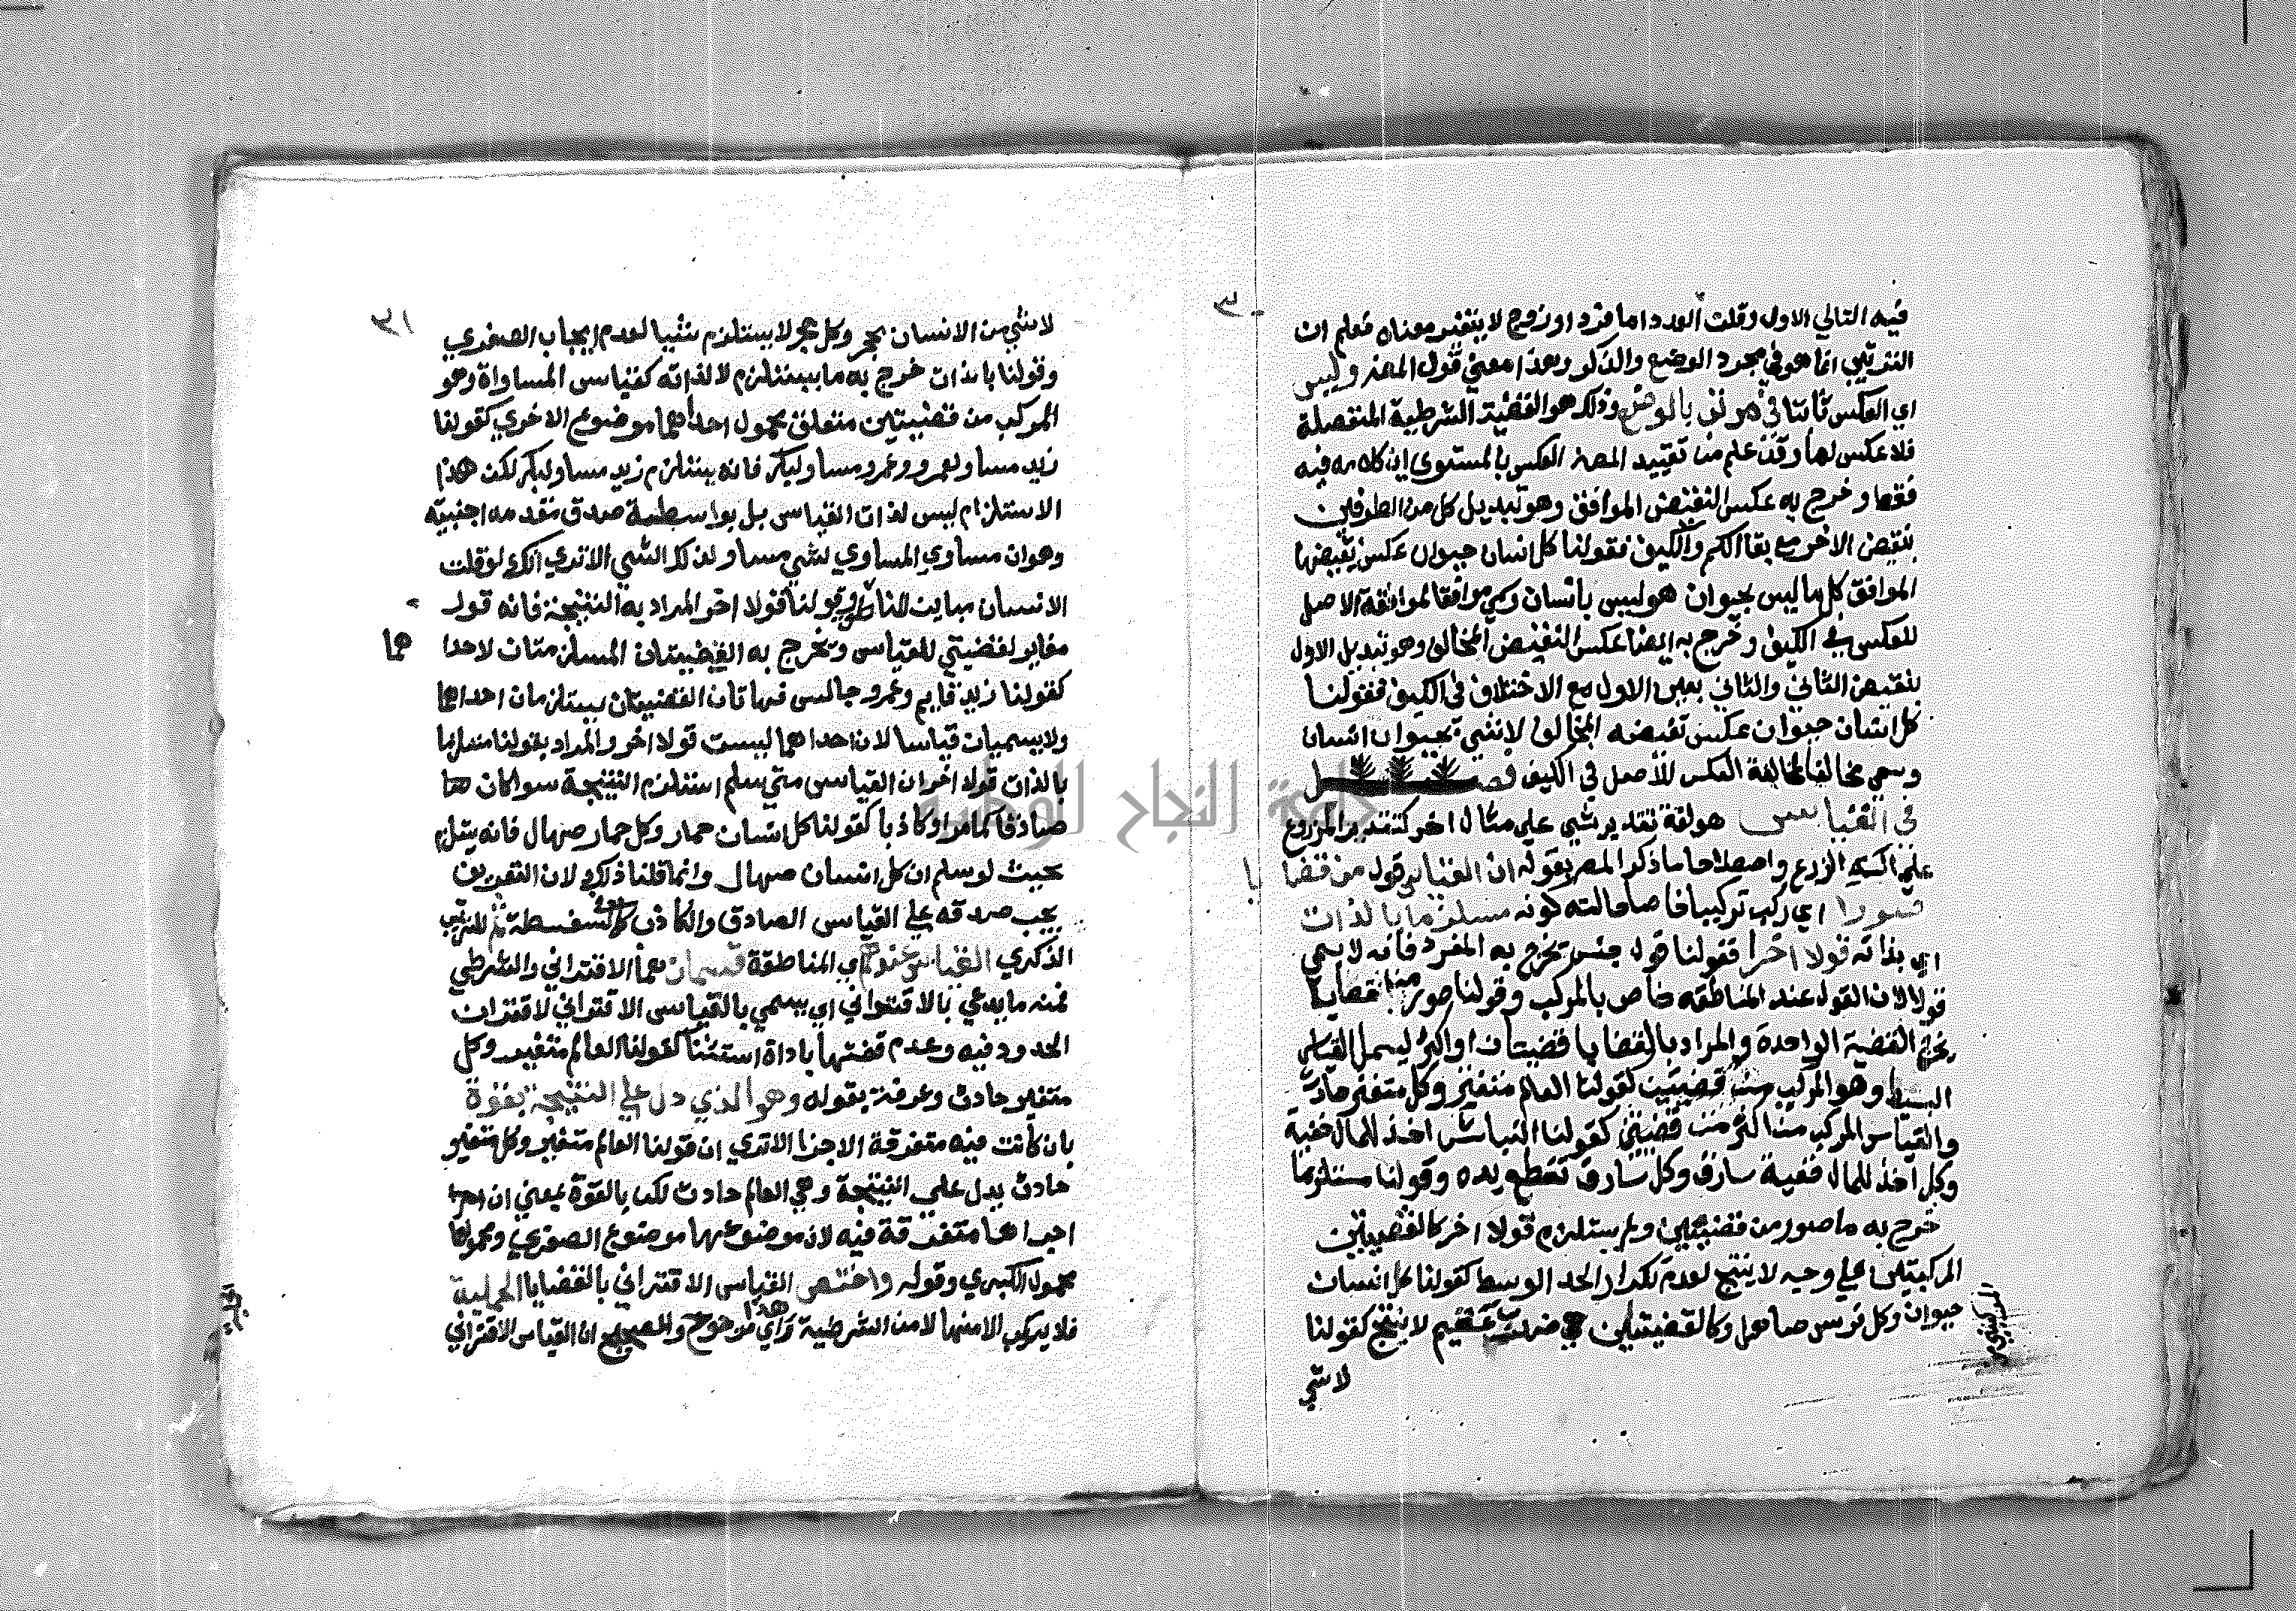 ٣٠
فيه التالي الاول وقلت العدد اما فرد او زوج لا يتغير معناه فعلم ان
الترتيب انما هو في مجرد الوضع والذكر وهذا معني قول المص وليس
اي العكس ثابتا في مرتب بالوضع وذلك هو القضية الشرطية المنفصلة
فلا عكس لها وقد علم من تقييد المص العكس بالمستوي ان كلامه فيه
فقط وخرج به عكس النقيض الموافق وهو تبديل كل من الطرفين
بنقيض الاخر مع بقا الكم والكيف فقولنا كل انسان حيوان عكس نقيضها
الموافق كل ما ليس بحيوان هو ليس بانسان وسمي موافقا لموافقة الاصل
للعكس في الكيف وخرج به ايضا عكس النقيض المخالف وهو تبديل الاول
بنقيض الثاني والثاني بعين الاول مع الاختلاف في الكيف فقولنا
كل انسان حيوان عكس نقيضه المخالف لا شي بحيوان انسان
وسمي مخالفا لمخالفة العكس للأصل في الكيف فصل
في القياس هو لغة تقدير شي علي مثال اخر كتقدير المزروع
علي الة الزرع واصطلاحا ما ذكرا المص بقوله ان القياس قول من قضايا
صورا اي ركب تركيبا خاصا حالته كونه مستلزما بالذات
اي بذاته قولا اخرا فقولنا قول جنس خرج به المفرد فانه لا يسمي
قولا لان القول عند المناطقه خاص بالمركب وقولنا صور من قضايا
يخرج القضية الواحدة والمراد بالقضايا قضيتان او اكثر ليشمل القياس
البسيط وهو المركب من قضيتين كقولنا العالم متغير وكل متغير حادث
والقياس المركب من اكثر من قضيتين كقولنا النباش اخذ للمال خفية
وكل اخذ للمال خفية سارق وكل سارق تقطع يده وقولنا مستلزما
خرج به ما صور من قضيتين ولم يستلزم قولا اخر كالقضيتين
المركبتين علي وجه لا ينتج لعدم تكرار الحد الوسط كقولنا كل انسان
حيوان وكل فرس صاهل وكالقضيتين في ضرب عقيم لا ينتج كقولنا
لا شي
٣١
لا شي من الانسان بحجر وكل حجر لا يستلزم شيا لعدم ايجاب الصغري
وقولنا بالذات خرج به ما يستلزم لا لذاته كقياس المساواة وهو
المركب من قضيتين متعلق محمول احداهما موضوع الاخري كقولنا
زيد مساو لعمرو وعمرو مساو لبكر فانه يستلزم زيد مساو لبكر لكن هذا
الاستلزام ليس لذات القياس بل بواسطة صدق مقدمه اجنبية
وهو ان مساوي المساوي لشي مساو لذلك الشي الا تري انك لو قلت
الانسان مباين وقولنا قولا اخر المراد به النتيجة فانه قول
مغاير لقضيتي للقياس وخرج به القضيتان المستلزمتان لاحدا هما
كقولنا زيد قايم وعمرو جالس فهاتان القضيتان يستلزمان احداهما
ولا يسميان قياسا لان احداهما ليست قولا اخر والمراد بقولنا مستلزما
بالذات قولا اخر ان القياس متي سلم استلزم النتيجة سوا كان
صادقا كما مر او كاذبا كقولنا كل انسان حمار وكل حمار صهال فانه يستلزم
بحيث لو سلم ان كل انسان صهال وانما قلنا ذلك لان التعريف
يجب صدقه علي القياس الصادق والكاذب كالسفسطة ثم للترتيب
الذكري القياس عندهم اي المناطقة قسمان هما الاقتراني والشرطي
فمنه ما يدعي بالاقتراني اي يسمي بالقياس الاقتراني لاقتران
الحدود فيه وعدم قضتها باداة استثنا كقولنا العالم متغير وكل
متغير حادث وعرفه بقوله وهو الذي دل علي النتيجة بقوة
بان كانت فيه متفرقة الاجزا الا تري ان قولنا العالم متغير وكل متغير
حادث يدل علي النتيجة وهي العالم حادث لكن بالقوة بمعني ان
اجزاها متفرقة فيه لان موضوعها موضوع الصغري ومحمولها
محمول الكبري وقوله واختص القياس الاقتراني بالقضايا الحملية
فلا يتركب الا منها لا من الشرطية وهذا راي مرجوح والصحيح ان القياس الاقتراني
جامعة النجاح الوطنية